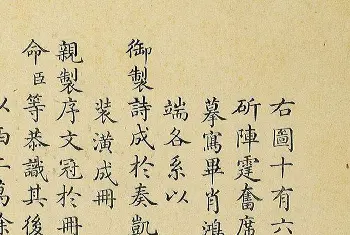 右圖十有六
斫陣霆奮席
摹寫畢肖鴻
端各系以
御製詩成於奏凱
裝潢成冊
親製序文冠於冊
命臣等恭識其後
以西士萬餘